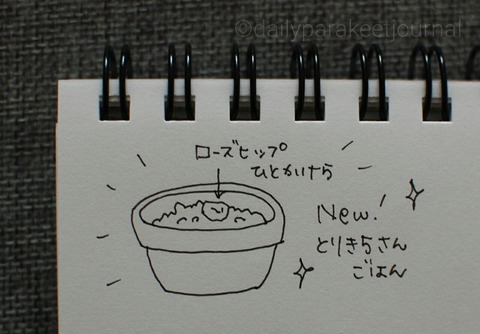 ©dailyparakeetjournal
ローズヒップ
ひとかけら
New!
とりきちさん
ごはん